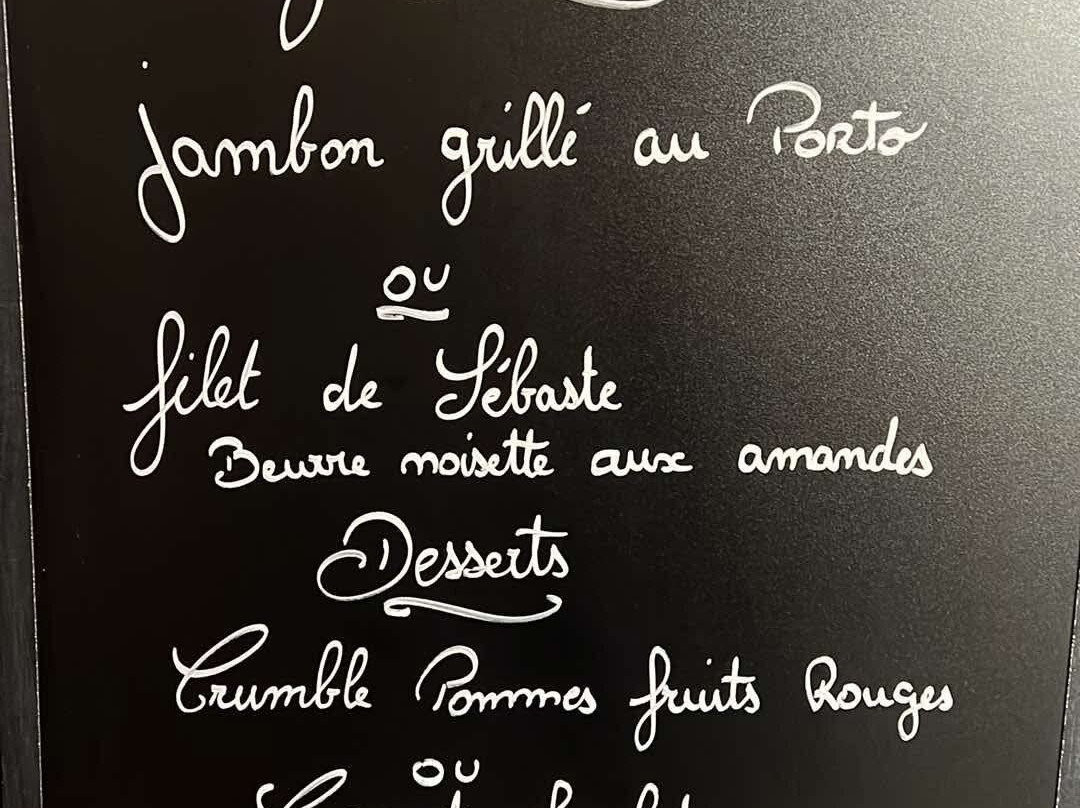 Jambon grillé au Porto
ou
filet de Sébaste
Beurre noisette aux amandes
Desserts
Crumble Pommes fruits Rouges
ou